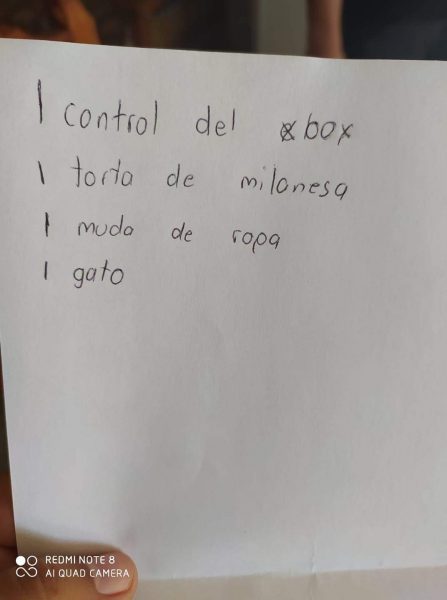 1 control del xbox
1 torta de milanesa
1 muda de ropa
1 gato
REDMI NOTE 8
AI QUAD CAMERA